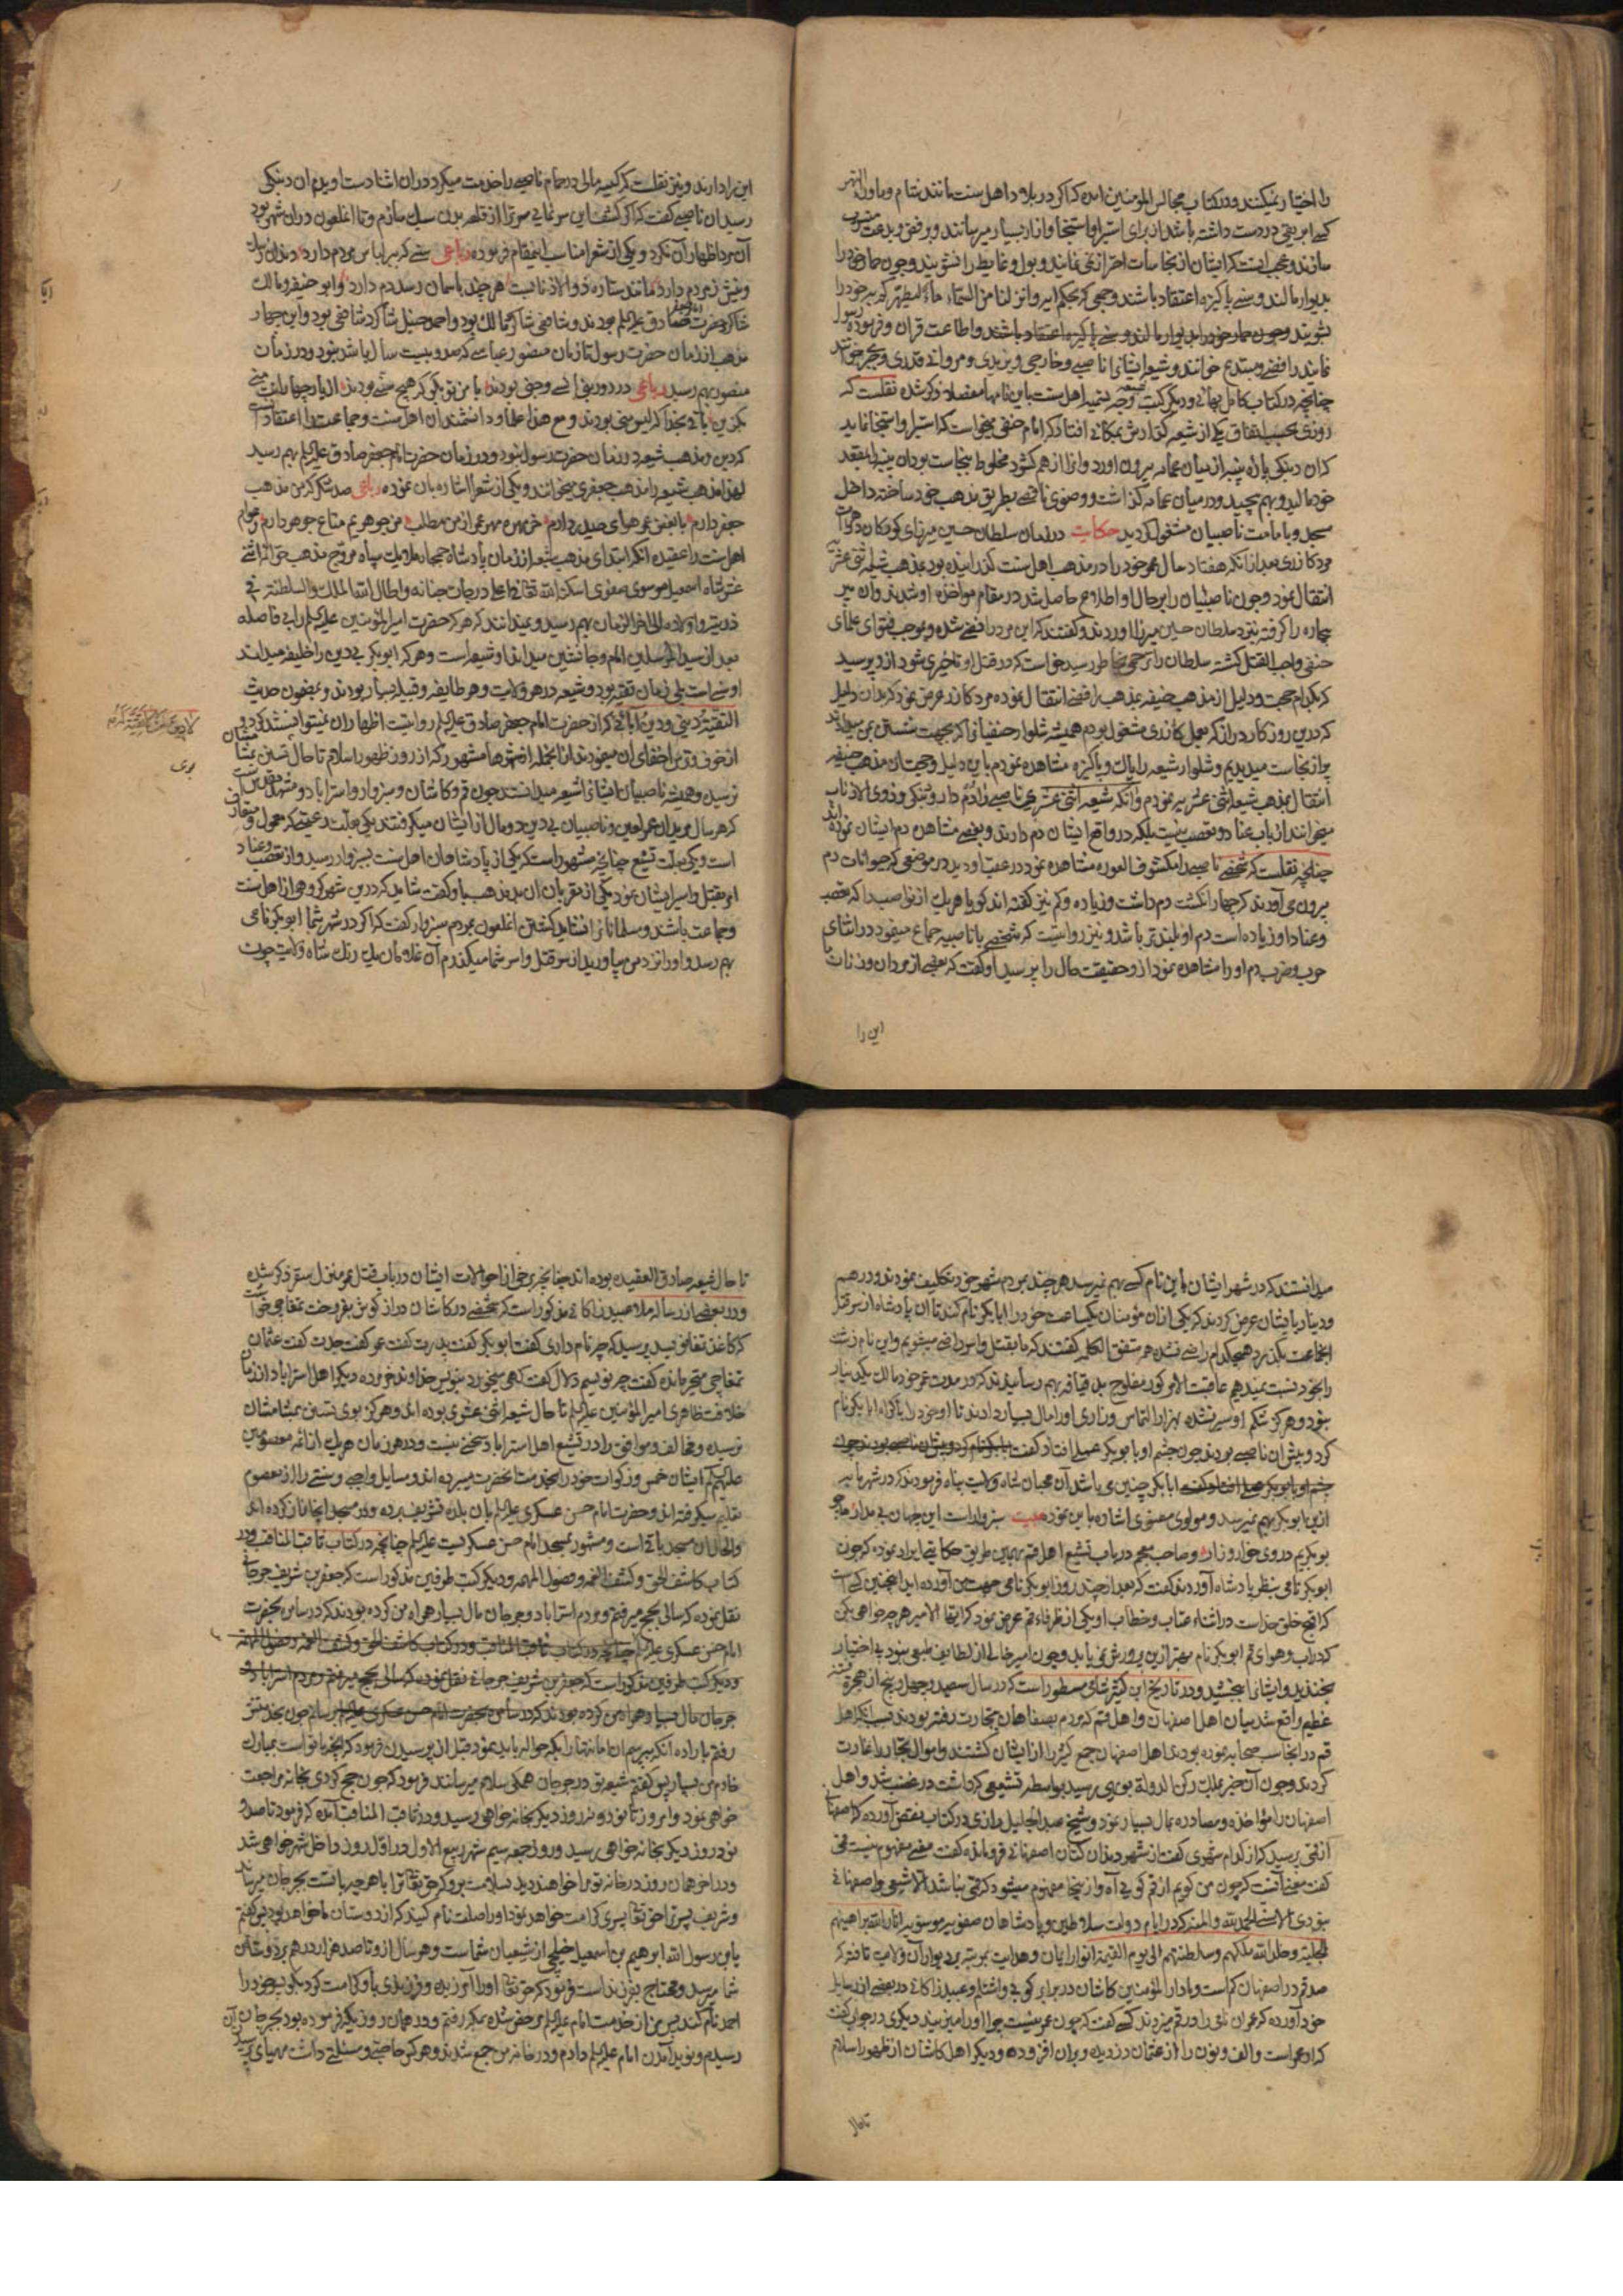 را اختیار نمیکنند و در کتاب مجالس المؤمنین آمده که اگر در بلاد اهل سنت مانند شام و ماوراء النهر
کسی ابریقی در دست داشته باشد از برای استبرا و استنجا و آزار بسیار میرسانند و برفض و بدعت منسوب
سازند و عجب است که ایشان از نجاسات احتراز نمی نمایند و بول و غایط را نشویند و چون حمار خود را
بدیوار مالند و سنی پاکیزه اعتقاد باشند و جمعی که بحکم آیه وانزلنا من السماء ماء لیطهرکم به خود را
بشویند و اطاعت قران و فرموده رسول
نمایند رافضی و مبتدع خوانند و شیعه ایشان را ناصبی و خارجی و یزیدی و مروانی و قدری و مجبر خوانند
چنانچه در کتاب کامل بهائی و دیگر کتب شیعه وجه تسمیه اهل سنت باین نامها مفصلا ذکر شده نقلست که
روزی بحسب اتفاق یکی از شیعه گذارش بمکانی افتاد که امام حنفی میخواست که استبرا و استنجا نماید
خود مالید و بهم پیچید و در میان عمامه گذاشت و وضوی ناقصی بطریق مذهب خود ساخته داخل
مسجد و بامامت ناصبیان مشغول گردید حکایت در زمان سلطان حسین میرزای کورکان در هرات
مرد کازری بعد از آنکه هفتاد سال عمر خود را در مذهب اهل سنت گذرانیده بود بمذهب شیعه اثنی عشریه
انتقال نمود و چون ناصبیان را بر حال او اطلاع حاصل شد در مقام مواخذه او شدند و آن پیر
بیچاره را گرفته نزد سلطان حسین میرزا اوردند و گفتند که این مرد رافضی شده و بموجب فتوای علمای
حنفی واجب القتل گشته سلطان را رحمی بخاطر رسید خواست که در قتل او تاخیری شود از او پرسید
که بکدام حجت و دلیل از مذهب حنیفه بمذهب رافضی انتقال نموده مرد کازر عرض نمود که بدان دلیل
که درین روزکار دراز که بعمل کازری مشغول بودم همیشه شلوار حنفیانی که بجهت شستن بمن میدادند
پر از نجاست میدیدم و شلوار شیعه را پاک و پاکیزه مشاهده نمودم باین دلیل و حجت از مذهب حنیفه
انتقال بمذهب شیعه اثنی عشریه نمودم و آنکه شیعه اثنی عشری ناصبی را دم دار و تنبکی و ذوی الاذناب
میخوانند از باب عناد و تعصب نیست بلکه در واقع ایشان دم دارند و بعضی مشاهده دم ایشان نموده اند
چنانچه نقلست که شخصی ناصبی را مکشوف العوره مشاهده نمود در عقب او دید در موضعی که حیوانات دم
بیرون می آورند که چهار انکشت دم داشت و زیاده و کم نیز گفته اند گویا هر یک از نواصب را که تعصب
و عناد او زیاده است دم او بلندتر باشد و نیز روایتست که شخصی با ناصبیه جماع مینمود در اثنای
حرب و ضرب دم او را مشاهده نمود از و حقیقت حال را پرسید او گفت که بعضی از مردان و زنان ما
این را
این را دارند و نیز نقلست که کیسه مالی در حمام ناصبی را خدمت میکرد در ان اثنا دست او بدم ان دنبکی
رسید ان ناصبی گفت که اگر کشف این سر نمایی سر ترا از قلعه بدن سبک سازم و تا آن ملعون در ان شهر بود
آن مرد اظهار آن نکرد و یکی از شعرا مناسب اینمقام فرموده رباعی سنی که بسر لباس مردم دارد دندان
ونیش زمردم دارد مانند ستاره ذو الاذنابست هر چند باسمان رسد دم دارد و ابو حنیفه و مالک
شاکرد حضرت امام جعفر صادق علیه السلم بودند و شافعی شاکرد مالک بود و احمد حنبل شاکرد شافعی بود و این چهار
مذهب از زمان حضرت رسول تا زمان منصور عباسی که صد و بیست سال باشد نبود و در زمان
منصور بهم رسید رباعی
لهذا مذهب شیعه را مذهب جعفری میخوانند و یکی از شعرا اشاره بان نموده رباعی صد شکر که من مذهب
جعفر دارم
اهل سنت را عقیده آنکه ابتدای مذهب شیعه از زمان پادشاه جمجاه ملایک سپاه مروج مذهب حق ائمه اثنی
عشر شاه اسمعیل موسوی صفوی اسکنه الله تعالی اعلا درجات جنانه و اطال الله الملک والسلطنة فی
ذریته و اولاده الی اخر الزمان بهم رسید و نمیدانند که هر که حضرت امیر المؤمنین علیه السلم را بی فاصله
بعد از سید المرسلین امام و جانشین میداند او شیعه است و هر که ابو بکر بی دین را خلیفه میداند
او سنی است بلی زمان تقیه بود و شیعه در هر ولایت و هر طایفه و قبیله بسیار بودند و بمضمون حدیث
التقیة دینی و دین آبائی که از حضرت امام جعفر صادق علیه السلم روایتست اظهار ان نمیتوانستند کرد و
از خوف و ترس اخفای ان مینمودند از انجمله از شهرها مشهور که از روز ظهور اسلام تا حال تسنن بمشامشان
نرسیده و همیشه ناصبیان ایشان را شیعه میدانستند چون قم و کاشان و سبزوار و استراباد و مشهد مقدس
که هر سال مریدان عمر لعین و ناصبیان بی دین دو مال از ایشان میکرفتند یکی بعلت رعیتی که معمول و متعارف
است و یکی بعلت تشیع چنانچه مشهور است که یکی از پادشاهان اهل سنت بسبزوار رسید و از تعصب و عناد
امر بقتل و اسر ایشان نمود یکی از مقربان ان بد مذهب باو گفت شاید که درین شهر گروهی از اهل سنت
و جماعت باشند و مسلمانان را نشاید کشتن ان ملعون بمردم سبزوار گفت که اگر در شهر شما ابو بکر نامی
بهم رسد و او را نزد من بیاورید از سر قتل و اسر شما میگذرم آن غلامان یک رنک شاه ولایت چون
بوی
میدانستند که در شهر ایشان باین نام کسی بهم نمیرسد هر چند بمردم شهر خود تکلیف نمودند و درهم
و دینار بایشان عرض کردند که یکی از ان مؤمنان یکساعت خود را ابا بکر نام کند تا ان پادشاه از سر قتل
انجماعت بگذرد هیچکدام راضی نشده همه متفق الکلمه گفتند که ما بقتل و اسر راضی میشویم و این نام زشت
را بخود نسبت نمیدهیم عاقبت الامر کور مفلوج بد قیافه بهم رسانیدند که در مدت عمر خود مالک یک دینار
نبود و هرگز شکم او سیر نشده بهزار التماس و زاری او را مال بسیار دادند تا او خود را باکراه ابا بکر نام
کرد و پیش ان ناصبی بودند چون چشم او بابو بکر عملی افتاد گفت
ابا بکر چنین می باشد آن محبان شاه ولایت پناه فرمودند که در شهر ما به
ازین ابو بکر بهم نمیرسد و مولوی معنوی اشاره باین نموده بیت سبزوار است این جهان بی مدار ما چو
بو بکریم در وی خوار و زار و صاحب معجم در باب تشیع اهل قم بهمین طریق حکایتی ایراد نموده که چون
ابو بکر نامی بنظر پادشاه آوردند گفت که بعد از چند روز ابو بکر نامی جهت من آورده اید اینچنین کسی است
که اقبح خلق خداست در اثناء عتاب و خطاب او یکی از ظرفاء قم عرض نمود که ایها الامیر هر چه خواهی بکن
که در اب و هوای قم ابو بکر نام بهتر ازین پرورش نمی یابد و چون امیر خالی از لطایف طبعی نبود بی اختیار
بخندید و ایشان را ببخشید و در تاریخ ابن کثیر شامی مسطور است که در سال سیصد و چهل و پنج از هجرة فتنه
عظیم واقع شد میان اهل اصفهان و اهل قم که مردم بصفاهان بتجارت رفته بودند بسبب انکه اهل
قم در انجا سب صحابه نموده بودند اهل اصفهان جمع کثیر را از ایشان کشتند و اموال تجار را غارت
کردند و چون آن خبر بملک رکن الدوله بویی رسید بواسطه تشیعی که داشت در غضب شد و اهل
اصفهان را مؤاخذه و مصادره بمال بسیار نمود و شیخ عبد الجلیل رازی در کتاب نقض آورده که اصفهانی
از قمی پرسید که از کدام شهری گفت از شهر دندان کنان اصفهانی فرو مانده گفت معنی مفهوم نیست قمی
گفت معنی آنست که چون من گویم از قم گویی آه و از ینجا مفهوم میشود که قمی نباشد الا شیعی و اصفهانی
نبودی الا سنی الحمد لله والمنه که در ایام دولت سلاطین و پادشاهان صفویه موسویه انار الله براهینهم
الجلیة و خلد الله ملکهم و سلطنتهم الی یوم القیمة انوار ایمان و هدایت بمرتبه بر دیوار آن ولایت تافته که
صد قم در اصفهان کم است و مادار المؤمنین کاشان در برابر کوی و عبید زاکانی در بعضی از رسایل
خود آورده که عمران نامی را در قم میزدند کسی گفت که چون عمر نیست چرا او را میزنید دیگری در جواب گفت
که او عمر است و الف و نون را از عثمان دزدیده و بران افزوده و دیگر اهل کاشان از ظهور اسلام
تا حال
تا حال شیعه صادق العقیده بوده اند چنانچه برخی از احوالات ایشان در باب قتل عمر منزل سقر ذکر شده
و در بعضی از رساله ملا عبید زاکانی مذکور است که شخصی در کاشان دراز گوش بفروخت تمغاچی خواست
که کاغذ تمغا نویسد پرسید که چه نام داری گفت ابو بکر گفت پدرت گفت عمر گفت جدت گفت عثمان
تمغاچی متحیر مانده گفت چه نویسم دلال گفت بنویس خداوند خر و دیگر اهل استراباد از زمان
خلافت ظاهری امیر المؤمنین علیه السلم تا حال شیعه اثنی عشری بوده اند و هرگز بوی تسنن بمشامشان
نرسیده و مخالف و موافق را در تشیع اهل استراباد سخنی نیست و در هر زمان هر یک از ائمه معصومین
علیهم السلم ایشان خمس و زکوات خود را بخدمت انحضرت میبرده اند و مسایل واجبی و سنتی را از معصوم
تعلیم میگرفته اند و حضرت امام حسن عسکری علیه السلم بان بلده تشریف برده و در مسجد انجا نماز کرده اند
والحال ان مسجد باقی است و مشهور بمسجد امام حسن عسکریست علیه السلم چنانچه در کتاب ثاقب المناقب و در
کتاب کاشف الحق و کشف الغمه و فصول المهمه و دیگر کتب طرفین مذکور است که جعفر بن شریف جرجانی
نقل نموده که سالی بحج میرفتم و مردم استراباد و جرجان مال بسیار همراه من کرده بودند که در سامره بحضرت
امام حسن عسکری علیه السلم
برسانم چون بخدمتش
رفتم باراده آنکه بپرسم ان امانتها را بکه حواله باید نمود قبل از پرسیدن فرمود که انچه با تو است بمبارک
خادم من بسپار پس گفتم شیعه تو در جرجان همگی سلام میرسانند فرمود که چون حج کردی بخانه مراجعت
خواهی نمود و امروز تا نود و نه روز دیگر بخانه خواهی رسید و در ثاقب المناقب آمده که فرمود تا صد و
نود روز دیگر بخانه خواهی رسید و روز جمعه سیم شهر ربیع الاول در اول روز داخل شهر خواهی شد
و در آخر همان روز در خانه تو مرا خواهند دید بسلامت برو که حق تعالی ترا با هر چه با تست بجرجان میرساند
و شریف پسر ترا حق تعالی پسری کرامت خواهد نمود او را صلت نام کنید که از دوستان ما خواهد بود پس گفتم
یابن رسول الله ابرهیم بن اسمعیل خلیجی از شیعیان شماست و هر سال از و تا صد هزار درهم بدوستان
شما میرسد و محتاج بفرزند است فرمود که حق تعالی او را آمرزیده و فرزندی باو کرامت کرد بگو پسر خود را
احمد نام کند پس من از خدمت امام علیه السلم مرخص شده بمکه رفتم و در همان روز که فرموده بود بجرجان
رسیدم و نوید آمدن امام علیه السلم دادم و در خانه من جمع شدند و هر کس حاجتی و مسئلتی داشت مهیای